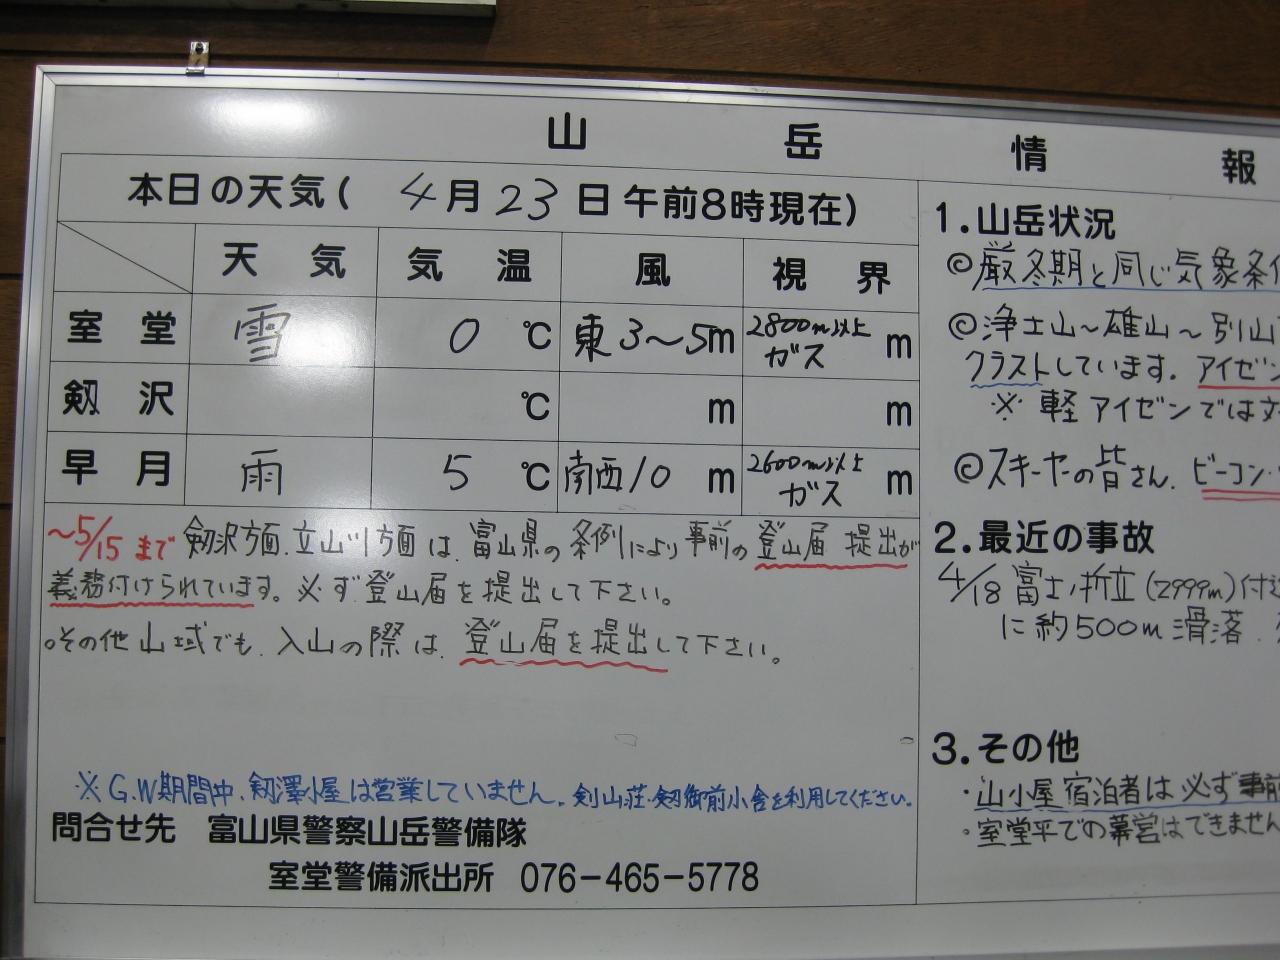 山岳情報
本日の天気(4月23日午前8時現在)
天気 気温 風 視界
室堂 雪 0℃ 東3～5m 2800m以上ガス m
剱沢 ℃ m m
早月 雨 5℃ 南西10m 2600m以上ガス m
～5/15まで 剱沢方面、立山川方面は、富山県の条例により事前の登山届提出が
義務付けられています。必ず登山届を提出して下さい。
。その他山域でも、入山の際は、登山届を提出して下さい。
※G.W期間中、剱澤小屋は営業していません。剣山荘・剱御前小舎を利用してください。
問合せ先 富山県警察山岳警備隊
室堂警備派出所 076-465-5778
1.山岳状況
◎厳冬期と同じ気象条
◎浄土山～雄山～別山
クラストしています。アイゼン
※軽アイゼンでは
◎スキーヤーの皆さん、ビーコン・
2.最近の事故
4/18 富士ノ折立(2999m)付
に約500m滑落、
3.その他
・山小屋宿泊者は必ず事前
・室堂平での幕営はできません